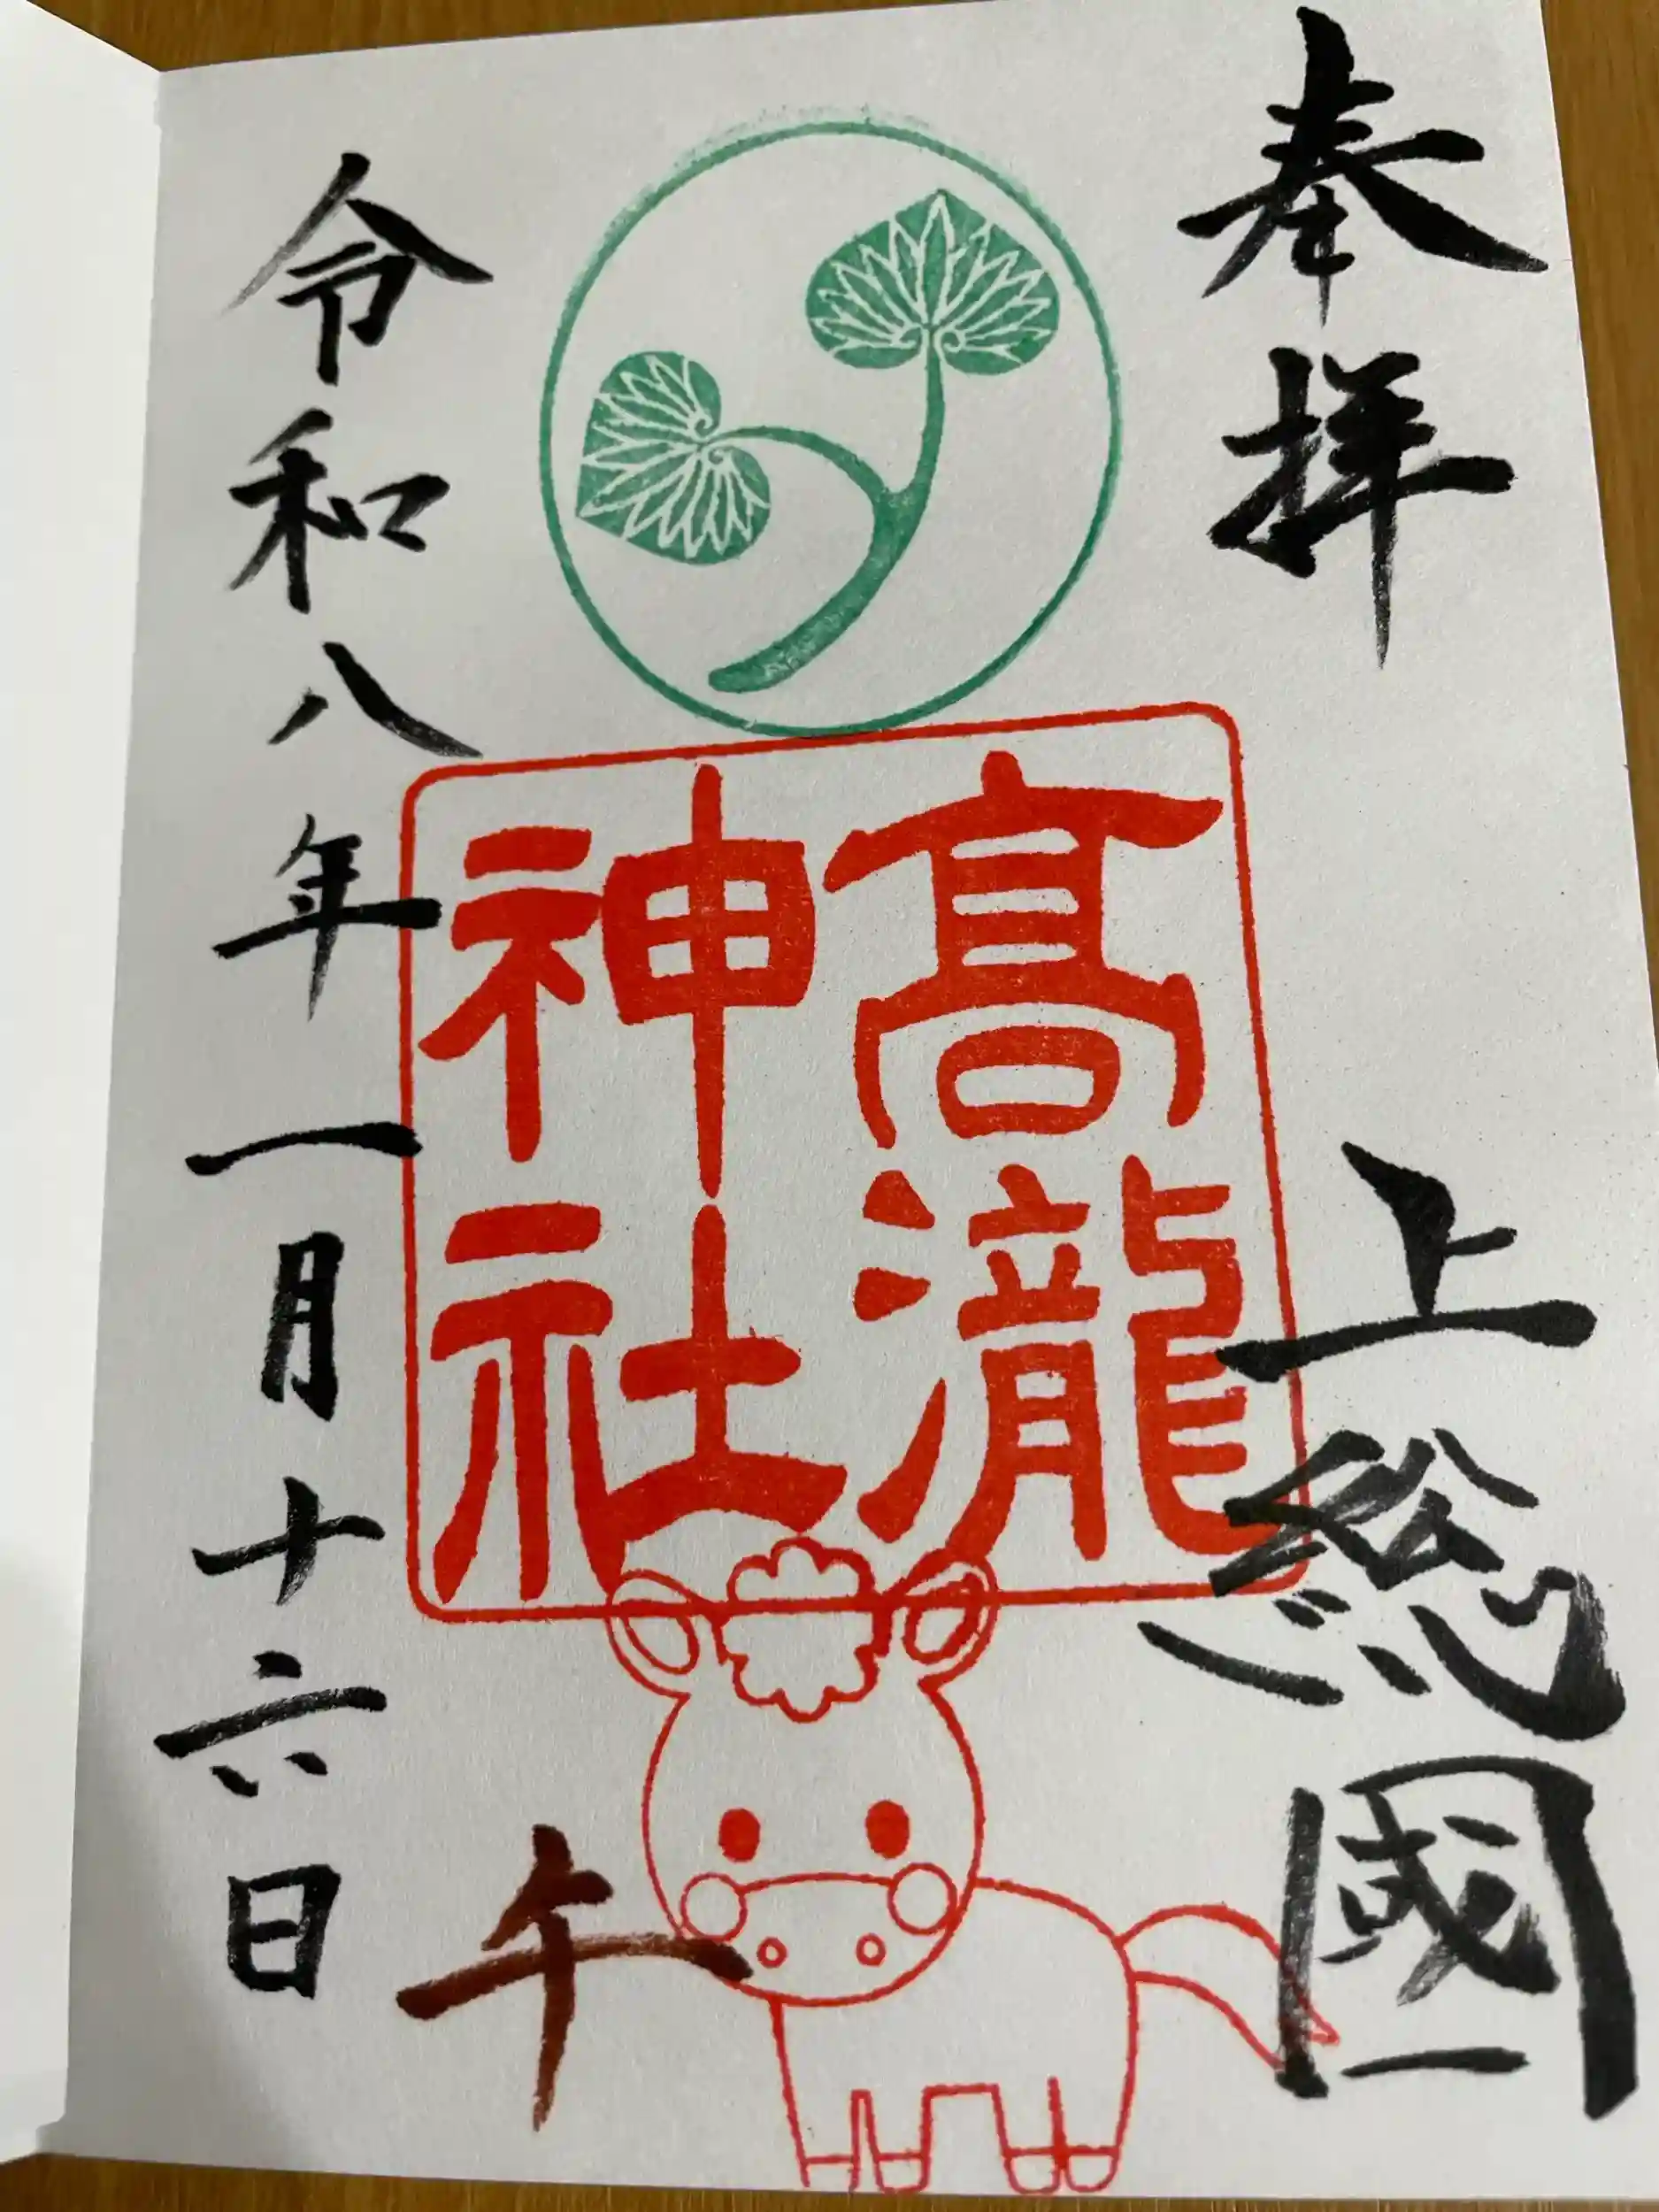 奉拝
上総國
髙瀧
神社
午
令和八年一月十六日